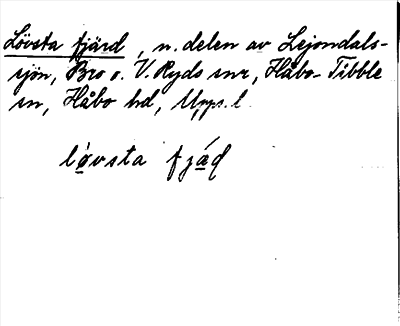 Lövsta fjärd, n. delen av Lejondals-
sjön, Bro o. V. Ryds snr, Håbo-Tibble
sn, Håbo hd, Upps. l.
lø̀vsta fjád